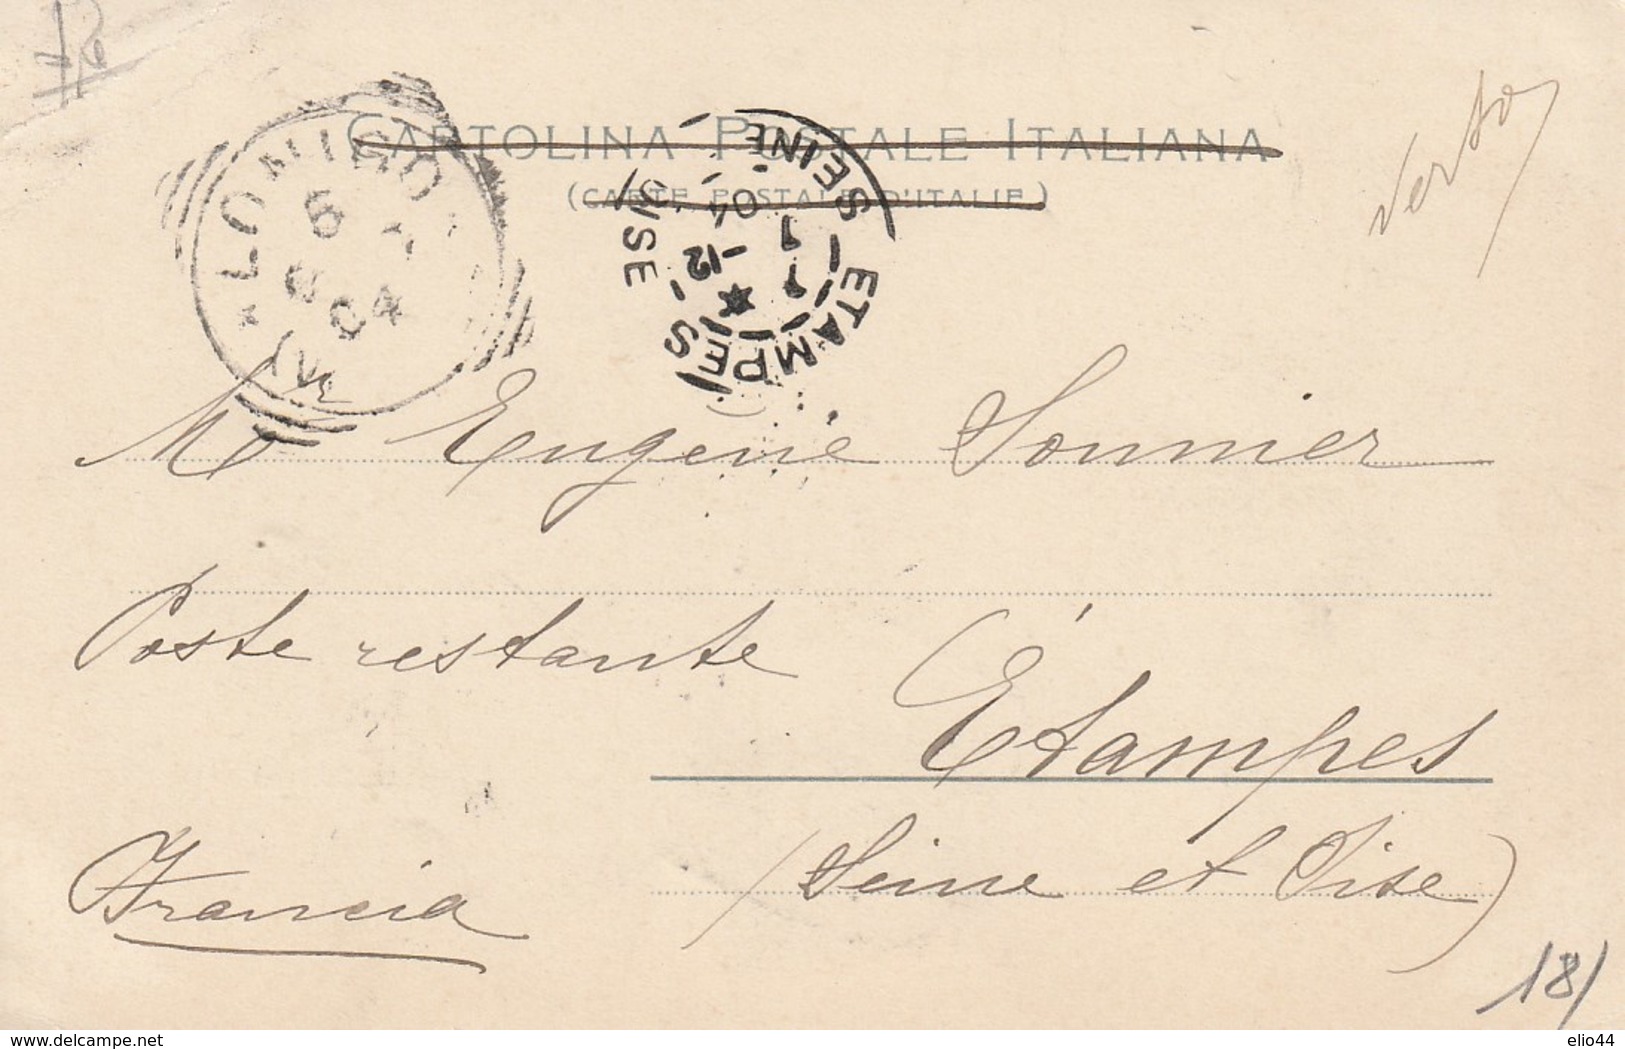 CARTOLINA POSTALE ITALIANA
(CARTE POSTALE D'ITALIE)
LONIGO
04
ETAMPES
SEINE
OISE
-12
04
verso
M Eugene Sounier
Poste restante
Étampes
(Seine et Oise)
Francia
181
delcampe.net
elio44